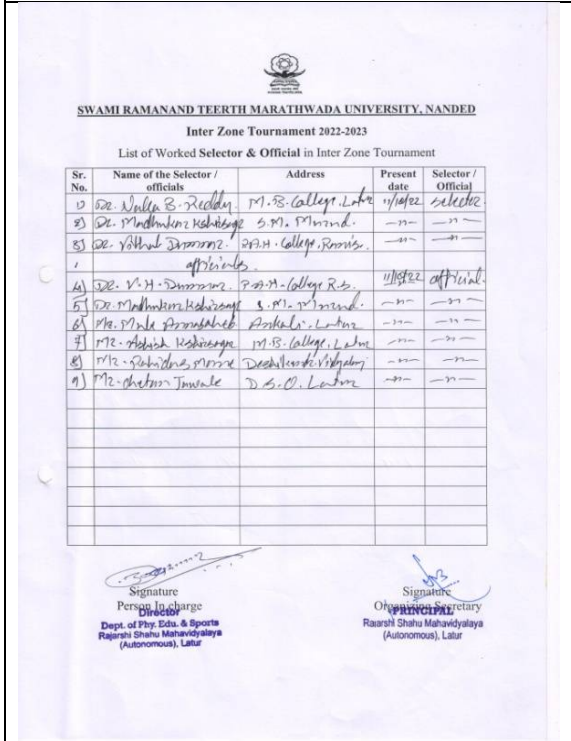 SWAMI RAMANAND TEERTH MARATHWADA UNIVERSITY, NANDED
Inter Zone Tournament 2022-2023
List of Worked Selector & Official in Inter Zone Tournament
Sr. No. Name of the Selector / officials Address Present date Selector / Official
1) DR. B. Reddy. M.B. College, Latur 11/10/22 selector
2) DR. Madhukar Kshirsagar S.M. Murud. —〃— —〃—
3) DR. Vitthal College, —〃— —〃—
officials
4) DR. V. H. College 11/10/22 official.
5) DR. Madhukar Kshirsagar S.M. Murud. —〃— —〃—
6) Mr. Mule Annasaheb Latur —〃— —〃—
7) Mr. Ashish Kshirsagar M.B. College, Latur —〃— —〃—
8) Mr. More —〃— —〃—
9) Mr. Chetan D.S.O. Latur —〃— —〃—
Signature
Person In charge
Director
Dept. of Phy. Edu. & Sports
Rajarshi Shahu Mahavidyalaya
(Autonomous), Latur
Signature
Organizing Secretary
PRINCIPAL
Rajarshi Shahu Mahavidyalaya
(Autonomous), Latur